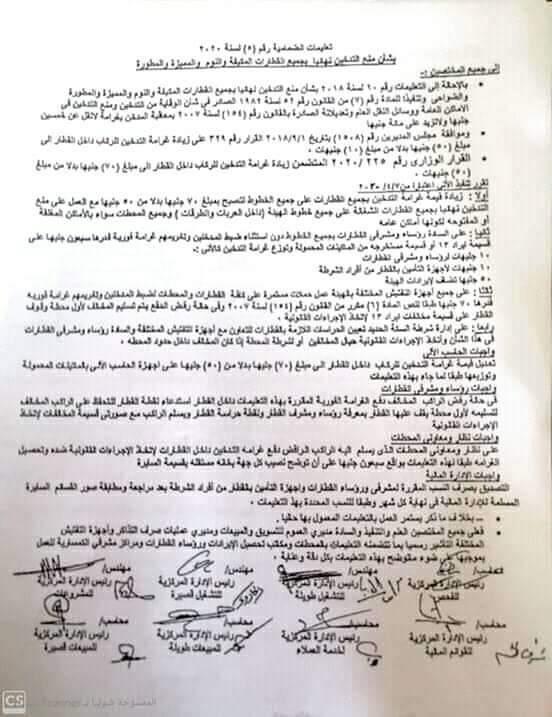 تعليمات الضمامية رقم (٥) لسنة ٢٠٢٠
بشأن منع التدخين نهائيا بجميع القطارات المكيفة والنوم والمميزة والمطورة
إلى جميع المختصين :-
بالإحالة إلى التعليمات رقم ١٠ لسنة ٢٠١٨ بشأن منع التدخين نهائيا بجميع القطارات المكيفة والنوم والمميزة والمطورة
والضواحى وتنفيذا للمادة رقم (٧) من القانون رقم ٥٢ لسنة ١٩٨٢ الصادر فى شأن الوقاية من التدخين ومنع التدخين فى
الأماكن العامة ووسائل النقل العام وتعديلاته الصادرة بالقانون رقم (١٥٤) لسنة ٢٠٠٧ بمعاقبة المدخن بغرامة لا تقل عن خمسين
جنيها ولاتزيد على مائة جنيها
وموافقة مجلس المديرين رقم (١٥٠٨) بتاريخ ٢٠١٨/٩/١ القرار رقم ٣٢٩ على زيادة غرامة التدخين للركاب داخل القطار الى
مبلغ (٥٠) جنيها بدلا من مبلغ (١٠) جنيهات ٠
القرار الوزارى رقم ٢٢٥ /٢٠٢٠ المتضمن زيادة غرامة التدخين للركاب داخل القطار الى مبلغ (٧٠) جنيها بدلا من مبلغ
(٥٠) جنيهات ٠
تقرر تنفيذ الآتى إعتبارا من ٢٠٢٠/٤/٧
أولاً : زيادة قيمة غرامة التدخين بجميع القطارات على جميع الخطوط لتصبح بمبلغ ٧٠ جنيها بدلا من ٥٠ جنيها مع العمل على منع
التدخين نهائيا بجميع القطارات الشغالة على جميع خطوط الهيئة (داخل العربات والطرقات) وجميع المحطات سواء بالأماكن المغلقة
أو المفتوحة لكونها أماكن عامه
ثانيا : على السادة رؤساء ومشرفى القطارات بجميع الخطوط دون استثناء ضبط المدخنين وتغريمهم غرامة فورية قدرها سبعون جنيها على
قسيمة ايراد ١٣ أو قسيمة مستخرجه من الماكينات المحمولة وتوزع غرامة التدخين كالأتى:-
١٠ جنيهات لرؤساء ومشرفى القطارات
١٠ جنيهات لأجهزة التأمين بالقطار من أفراد الشرطة
٥٠ جنيها تضاف لإيرادات الهيئة
ثالثا : على جميع أجهزة التفتيش المختلفة بالهيئة عمل حملات مستمرة على كافة القطارات والمحطات لضبط المدخنين وتغريمهم غرامة فورية
قدرها ٧٠ جنيها طبقا لنص المادة (٦) مكرر من القانون رقم (١٥٤) لسنة ٢٠٠٧ وفى حالة رفض الدفع يتم تسليم المخالف لأول محطة وقوف
القطار على قسيمة مخالفات ايراد ١٣ لاتخاذ الإجراءات القانونية ٠
رابعا : على إدارة شرطة السكة الحديد تعيين الحراسات اللازمة بالقطارات للتعاون مع أجهزة التفتيش المختلفة والسادة رؤساء ومشرفى القطارات
فى هذا الشأن واتخاذ الإجراءات القانونية حيال المخالفين أو لشرطة المحطة إذا كان المخالف داخل حدود المحطه ٠
واجبات الحاسب الآلى
تعديل قيمة غرامة التدخين للركاب داخل القطار الى مبلغ (٧٠) جنيها بدلا من (٥٠) جنيها على أجهزة الحاسب الآلى بالماكينات المحمولة
وتوزيعها طبقا لما جاء بهذه التعليمات
واجبات رؤساء ومشرفى القطارات
فى حالة رفض الراكب المخالف دفع الغرامة الفورية المقررة بهذه التعليمات داخل القطار استدعاء نقطة القطار للتحفظ على الراكب المخالف
لتسليمه لأول محطة يقف عليها القطار بمعرفة رؤساء ومشرف القطار ونقطة حراسة القطار ويسلم الراكب مع صورتى قسيمة المخالفات لاتخاذ
الإجراءات القانونية
واجبات نظار ومعاونى المحطات
على نظار ومعاونى المحطات الذى يسلم اليه الراكب الرافض دفع غرامه التدخين داخل القطار لاتخاذ الإجراءات القانونية ضده وتحصيل
الغرامه طبقا لهذه التعليمات بواقع سبعون جنيها على أن توضح نصيب كل جهة بخانه مستقله بقسيمة السايرة
واجبات الإدارة المالية
التصديق بصرف النسب المقررة لمشرفى ورؤساء القطارات وأجهزة التأمين بالقطار من أفراد الشرطة بعد مراجعة ومطابقة صور القسائم السايرة
المسلمة للإدارة المالية فى نهاية كل شهر وطبقا للنسب المحددة بهذه التعليمات ٠
- بخلاف ما ذكر يستمر العمل بالتعليمات المعمول بها حاليا .
فعلى جميع المختصين العلم والتنفيذ والسادة مديرى العموم للتسويق والمبيعات ومديرى عمليات صرف التذاكر وأجهزة التفتيش
المختلفة التأشير رسميا بما تتضمنه التعليمات بالمحطات ومكاتب تحصيل الإيرادات ورؤساء القطارات ومراكز مشرفى الكمسارية للعمل
بموجبها على ضوء ماتوضح بهذه التعليمات بكل دقة وعناية ٠
مهندس/ مهندس/ مهندس/ محاسب/
رئيس الإدارة المركزية رئيس الإدارة المركزية رئيس الإدارة المركزية رئيس الإدارة المركزية
للفحص للتشغيل طويلة للتشغيل قصيرة للمشروعات
محاسب/ محاسب/ محاسب/ محاسب/
رئيس الإدارة المركزية رئيس الإدارة المركزية رئيس الإدارة المركزية رئيس الإدارة المركزية
للقوائم المالية لخدمة العملاء للمبيعات طويلة للمبيعات قصيرة
CS الممسوحة ضوئيا بـ CamScanner